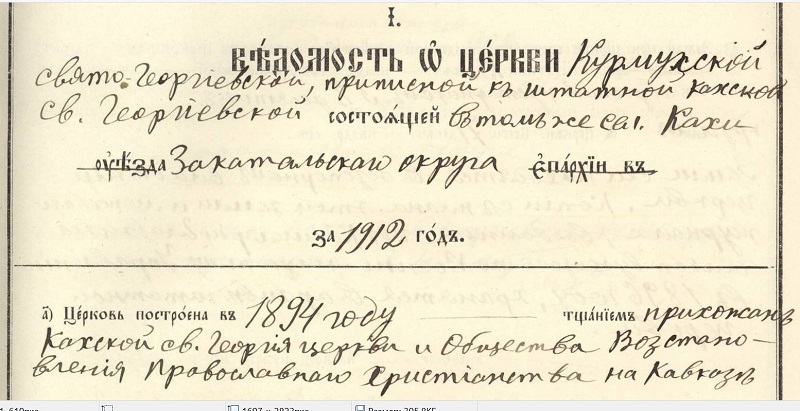 І.
ВѢ́ДОМОСТЬ Ѽ ЦЕ́РКВИ Курмухской
свято-Георгіевской, приписной къ штатной кахской
св. Георгіевской состоѧ́щей въ томъ же сел. Кахи
оуѣ́зда Закатальскаго округа є҆па́рхїи въ
за 1912 го́дъ.
а) Це́рковь постро́ена въ 1894 году тща́нїемъ прихожанъ
Кахской св. Георгія церкви и Общества Возстано-
вленія Православнаго Христіанства на Кавказѣ